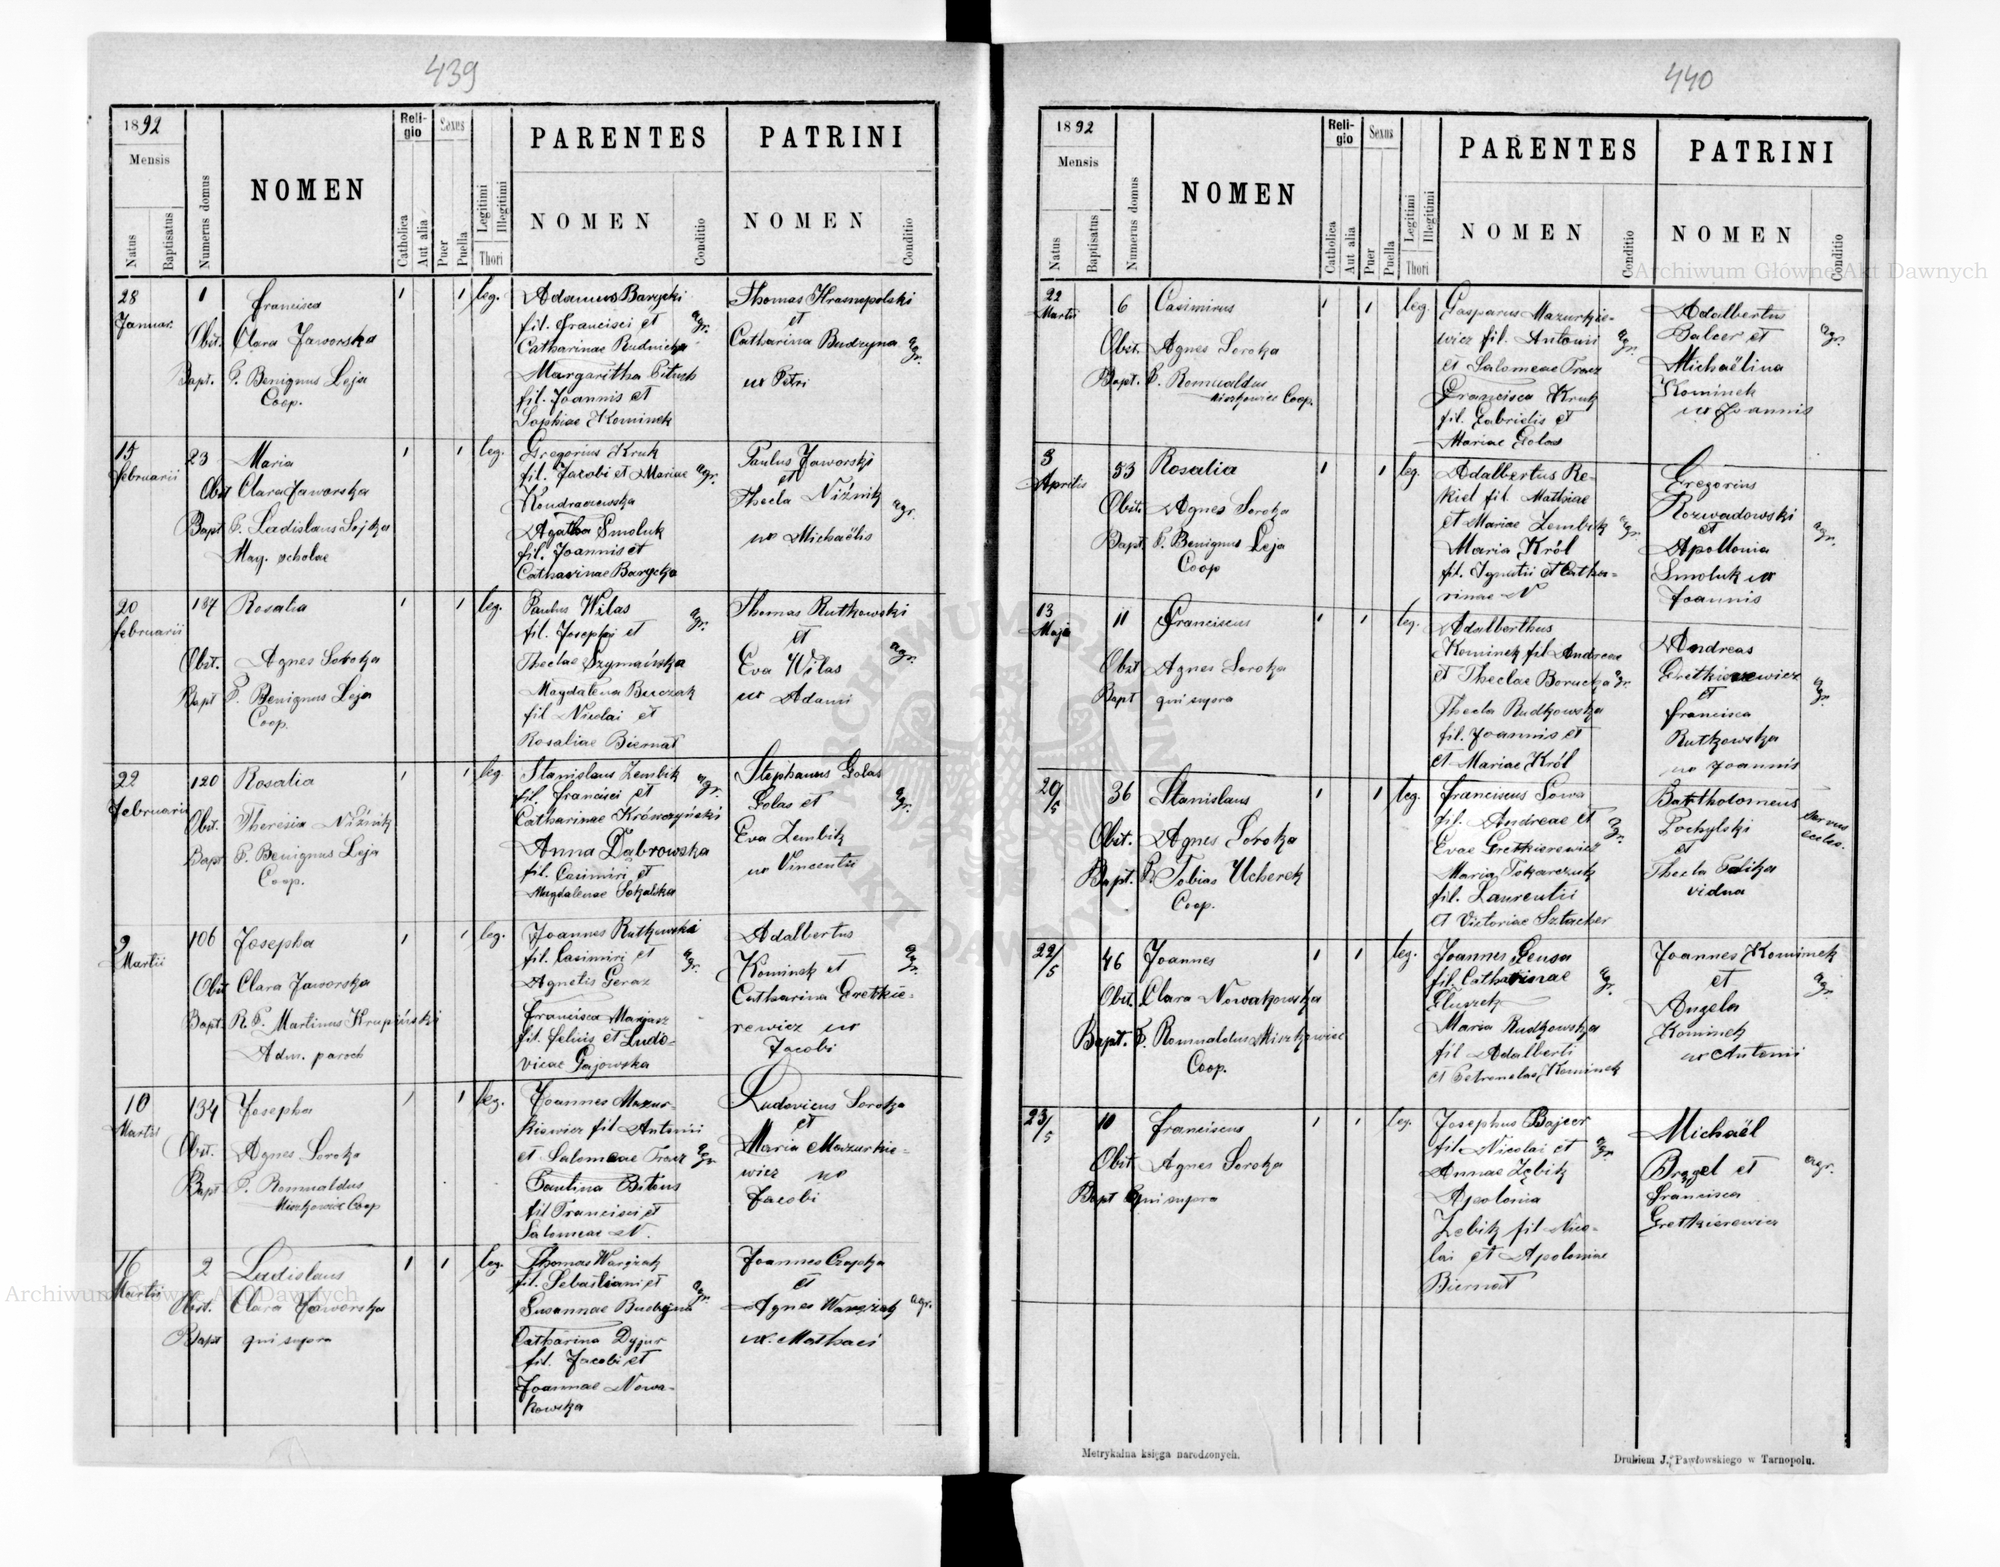 439
1892
Mensis
Natus
Baptisatus
Numerus domus
NOMEN
Religio
Catholica
Aut alia
Sexus
Puer
Puella
Legitimi
Illegitimi
Thori
PARENTES
NOMEN
Conditio
PATRINI
NOMEN
Conditio
28
Januar.
1
Francisca
leg.
Obst. Clara Jaworska
Bapt. P. Benignus Leja
Coop.
Adamus Barycki
fil. Francisci et
Catharinae Rudnicka
Margaritha Pituch
fil. Joannis et
Sophiae Kominek
agr.
Thomas Hramopolski
et
Catharina Budzyna
ux Petri
agr.
15
Februarii
23
Maria
leg.
Obst Clara Jaworska
Bapt P. Ladislaus Sojka
Mag. scholae
Gregorius Kruk
fil. Jacobi et Mariae
Kondraczewska
Agatha Smoluk
fil. Joannis et
Catharinae Barycka
agr.
Paulus Jaworski
et
Thecla Niźnik
ux Michaëlis
agr.
20
Februarii
187
Rosalia
leg.
Obst. Agnes Soroka
Bapt P. Benignus Leja
Coop.
Paulus Wilas
fil. Josephi et
Theclae Szymańska
Magdalena Buczak
fil Nicolai et
Rosaliae Biernat
agr.
Thomas Rutkowski
et
Eva Wilas
ux Adami
agr.
22
Februarii
120
Rosalia
leg.
Obst. Theresia Niźnik
Bapt P. Benignus Leja
Coop.
Stanislaus Zembik
fil. Francisci et
Catharinae Krówczyński
Anna Dąbrowska
fil. Casimiri et
Magdalenae Sokalska
agr.
Stephanus Golas
Golas et
Eva Zembik
ux Vincentii
agr.
9
Martii
106
Josepha
leg.
Obst Clara Jaworska
Bapt. R. P. Martinus Krupiński
Adm. paroch
Joannes Rutkowski
fil. Casimiri et
Agnetis Geraz
Francisca Marjasz
fil. Felicis et Ludo-
vicae Gajowska
agr.
Adalbertus
Kominek et
Catharina Gretkie-
rewicz ux
Jacobi
agr.
10
Martii
134
Josepha
leg.
Obst. Agnes Soroka
Bapt P. Romualdus
Mieszkowicz Coop
Joannes Mazur-
kiewicz fil Antonii
et Salomeae Tracz
Paulina Bitous
fil Francisci et
Salomeae N.
agr.
Ludovicus Soroka
et
Maria Mazurkie-
wicz ux
Jacobi
16
Martii
2
Ladislaus
leg.
Obst. Clara Jaworska
Bapt qui supra
Thomas Warężak
fil. Sebastiani et
Susannae Budzyna
Catharina Dyjur
fil. Jacobi et
Joannae Nowa-
kowska
agr.
Joannes Czapka
et
Agnes Warężak
ux. Mathaei
agr.
440
1892
Mensis
Natus
Baptisatus
Numerus domus
NOMEN
Religio
Catholica
Aut alia
Sexus
Puer
Puella
Legitimi
Illegitimi
Thori
PARENTES
NOMEN
Conditio
PATRINI
NOMEN
Conditio
22
Martii
6
Casimirus
leg.
Obst. Agnes Soroka
Bapt. P. Romualdus
Coop.
Gasparus Mazurkie-
wicz fil. Antonii
et Salomeae Tracz
Francisca Kruk
fil. Gabrielis et
Mariae Golas
agr.
Adalbertus
Balcer et
Michaëlina
Kominek
ux Joannis
agr.
3
Aprilis
53
Rosalia
leg.
Obst. Agnes Soroka
Bapt P. Benignus Leja
Coop
Adalbertus Re-
kiel fil. Mathiae
et Mariae Zembik
Maria Król
fil. Ignatii et Catha-
rinae N
agr.
Gregorius
Rozwadowski
et
Apollonia
Smoluk ux
Joannis
agr.
13
Maja
11
Franciscus
leg.
Obst Agnes Soroka
Bapt qui supra
Adalberthus
Kominek fil Andreae
et Theclae Borucka
Thecla Rudkowska
fil. Joannis et
et Mariae Król
agr.
Andreas
et
Francisca
Rutkowska
ux Joannis
agr.
20/5
36
Stanislaus
leg.
Obst. Agnes Soroka
Bapt. P. Tobias Ucherek
Coop.
Franciscus Sowa
fil. Andreae et
Evae Gretkierewicz
Maria Tokarczuk
fil. Laurentii
et Victoriae Sztacher
agr.
Bartholomeus
Pochylski
et
Thecla Palika
vidua
servus
eccles.
22/5
46
Joannes
leg.
Obst. Clara Nowakowska
Bapt. P. Romualdus Mieszkowicz
Coop.
Joannes Gensa
fil. Catharinae
Głuszek
Maria Rudkowska
fil Adalberti
et Petronelae Kominek
agr.
Joannes Kominek
et
Angela
Kominek
ux Antonii
agr.
23/5
10
Franciscus
leg.
Obst Agnes Soroka
Bapt qui supra
Josephus Bajcer
fil. Nicolai et
Annae Zębik
Apolonia
Zebik fil Nico-
lai et Apoloniae
Biernat
agr.
Michaël
Brągel et
Francisca
Gretkierewicz
agr.
Metrykalna księga narodzonych.
Drukiem J. Pawłowskiego w Tarnopolu.
Archiwum Główne Akt Dawnych
Archiwum Główne Akt Dawnych
ARCHIWUM GŁÓWNE AKT DAWNYCH